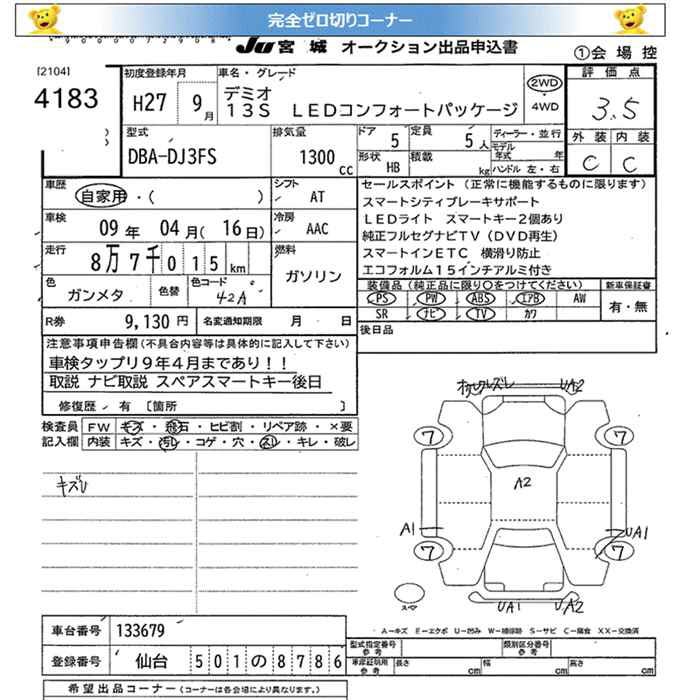 完全ゼロ切りコーナー
JU 宮城 オークション出品申込書
①会場控
[2104]
4183
初度登録年月
H27 9月
車名・グレード
デミオ
13S LEDコンフォートパッケージ
2WD
・
4WD
評価点
3.5
外装 内装
C C
型式
DBA-DJ3FS
排気量
1300cc
ドア 5
定員 5人
形状 HB
積載 kg
ディーラー・並行
モデル年式 年
ハンドル 左・右
車歴
自家用・( )
シフト
AT
車検
09年 04月(16日)
冷房
AAC
走行
8万7千015km
燃料
ガソリン
色
ガンメタ
色替
色コード
42A
R券 9,130円
名変通知期限 月 日
セールスポイント(正常に機能するものに限ります)
スマートシティブレーキサポート
LEDライト スマートキー2個あり
純正フルセグナビTV(DVD再生)
スマートインETC 横滑り防止
エコフォルム15インチアルミ付き
装備品(純正品に限り○をつけてください)
新車保証書
PS PW ABS エアB AW
SR ナビ TV カワ
有・無
後日品
注意事項申告欄(不具合内容等は具体的に記入して下さい)
車検タップリ9年4月まであり!!
取説 ナビ取説 スペアスマートキー後日
修復歴 有 〔箇所 〕
検査員
記入欄
FW キズ・飛石・ヒビ割・リペア跡・×要
内装 キズ・汚レ・コゲ・穴・スレ・キレ・破レ
キズU
UA2
7 7
A2
A1 UA1
7 7
UA1 UA2
スペア
A-キズ E-エクボ U-凹み W-補修跡 S-サビ C-腐食 XX-交換済
車台番号 133679
登録番号 仙台 501の8786
型式指定番号
参考
類別区分番号
参考
車庫証明用
参考
長さ cm
幅 cm
高さ cm
希望出品コーナー(コーナーは各会場により異なります。)